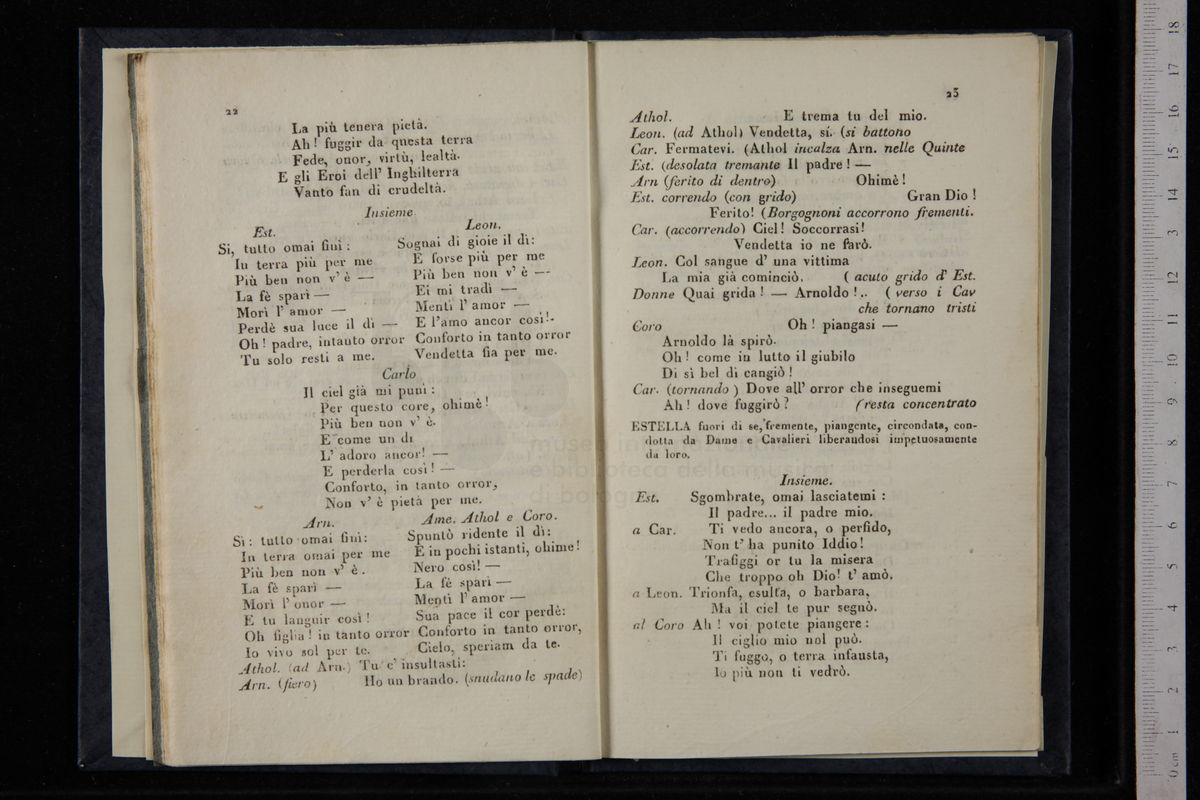 22
La più tenera pietà.
Ah! fuggir da questa terra
Fede, onor, virtù, lealtà.
E gli Eroi dell' Inghilterra
Vanto fan di crudeltà.
Insieme
Est.
Si, tutto omai finì:
In terra più per me
Più ben non v' è —
La fè sparì —
Morì l' amor —
Perdè sua luce il dì —
Oh! padre, intanto orror
Tu solo resti a me.
Leon.
Sognai di gioie il dì:
E forse più per me
Più ben non v' è —
Ei mi tradì —
Mentì l' amor —
E l'amo ancor così!-
Conforto in tanto orror
Vendetta fia per me.
Carlo
Il ciel già mi punì:
Per questo core, ohimè!
Più ben non v' è.
E come un dì
L' adoro ancor! —
E perderla così! —
Conforto, in tanto orror,
Non v' è pietà per me.
Arn.
Sì: tutto omai finì:
In terra omai per me
Più ben non v' è.
La fè sparì —
Morì l' onor —
E tu languir così!
Oh figlia! in tanto orror
Io vivo sol per te.
Ame. Athol e Coro.
Spuntò ridente il dì:
E in pochi istanti, ohime!
Nero così! —
La fè sparì —
Mentì l' amor —
Sua pace il cor perdè:
Conforto in tanto orror,
Cielo, speriam da te.
Athol. (ad Arn.) Tu c' insultasti:
Arn. (fiero) Ho un brando. (snudano le spade)
23
Athol. E trema tu del mio.
Leon. (ad Athol) Vendetta, sí. (si battono
Car. Fermatevi. (Athol incalza Arn. nelle Quinte
Est. (desolata tremante Il padre! —
Arn (ferito di dentro) Ohimè!
Est. correndo (con grido) Gran Dio!
Ferito! (Borgognoni accorrono frementi.
Car. (accorrendo) Ciel! Soccorrasi!
Vendetta io ne farò.
Leon. Col sangue d' una vittima
La mia già cominciò. ( acuto grido d' Est.
Donne Quai grida! — Arnoldo!.. ( verso i Cav
che tornano tristi
Coro Oh! piangasi —
Arnoldo là spirò.
Oh! come in lutto il giubilo
Di sì bel dì cangiò!
Car. (tornando) Dove all' orror che inseguemi
Ah! dove fuggirò? (resta concentrato
ESTELLA fuori di se, fremente, piangente, circondata, con-
dotta da Dame e Cavalieri liberandosi impetuosamente
da loro.
Insieme.
Est. Sgombrate, omai lasciatemi:
Il padre... il padre mio.
a Car. Ti vedo ancora, o perfido,
Non t' ha punito Iddio!
Trafiggi or tu la misera
Che troppo oh Dio! t' amò.
a Leon. Trionfa, esulta, o barbara,
Ma il ciel te pur segnò.
al Coro Ah! voi potete piangere:
Il ciglio mio nol può.
Ti fuggo, o terra infausta,
Io più non ti vedrò.
museo internazionale
e biblioteca della musica
di bologna
0 cm 1 2 3 4 5 6 7 8 9 10 11 12 13 14 15 16 17 18